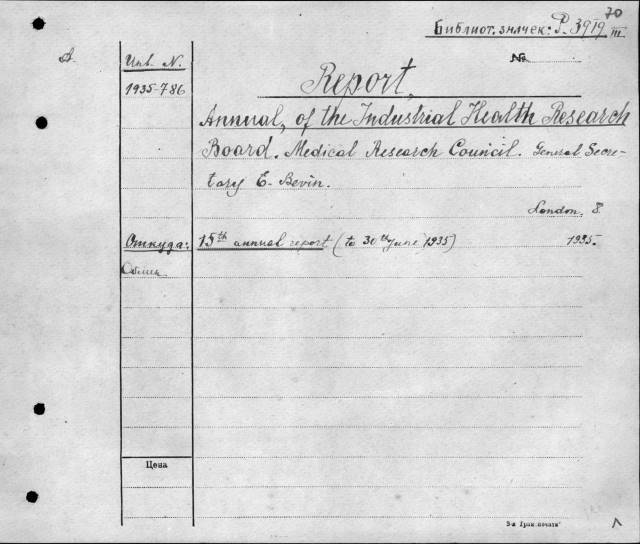 70
Библиот. значек: P-3919/III
А.
Инв. N.
№
1935-786
Report,
Annual, of the Industrial Health Research
Board. Medical Research Council. General Secre-
tary E. Bevin.
London, 8
Откуда:
15th annual report (to 30th June 1935)
1935.
Обмен
Цена